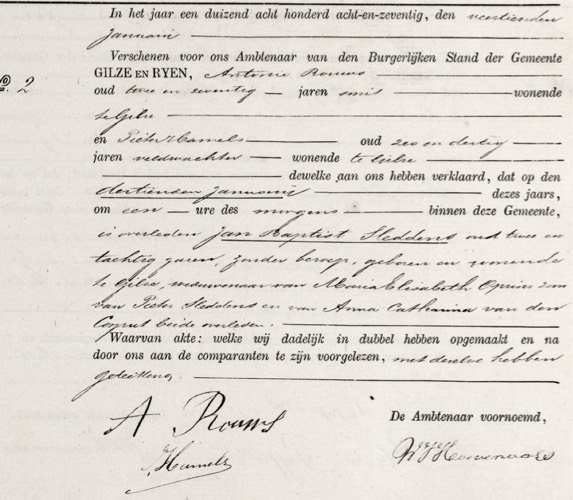 In het jaar een duizend acht honderd acht-en-zeventig, den veertienden
Januarij
Verschenen voor ons Ambtenaar van den Burgerlijken Stand der Gemeente
No. 2
GILZE EN RYEN, Antonie Rouws
oud twee en zeventig jaren smit wonende
te Gilze
en Pieter Hamels oud zes en dertig
jaren veldwachter wonende te Gilze
dewelke aan ons hebben verklaard, dat op den
dertienden Januarij dezes jaars,
om een ure des morgens binnen deze Gemeente,
is overleden Jan Baptist Sleddens oud twee en
tachtig jaren, zonder beroep, geboren en wonende
te Gilze, weduwenaar van Maria Elisabeth zoon
van Pieter Sleddens en van Anna Catharina van den
Corput beide overleden.
Waarvan akte: welke wij dadelijk in dubbel hebben opgemaakt en na
door ons aan de comparanten te zijn voorgelezen, met dezelve hebben
geteekend.
A Rouws
De Ambtenaar voornoemd,
Hamels